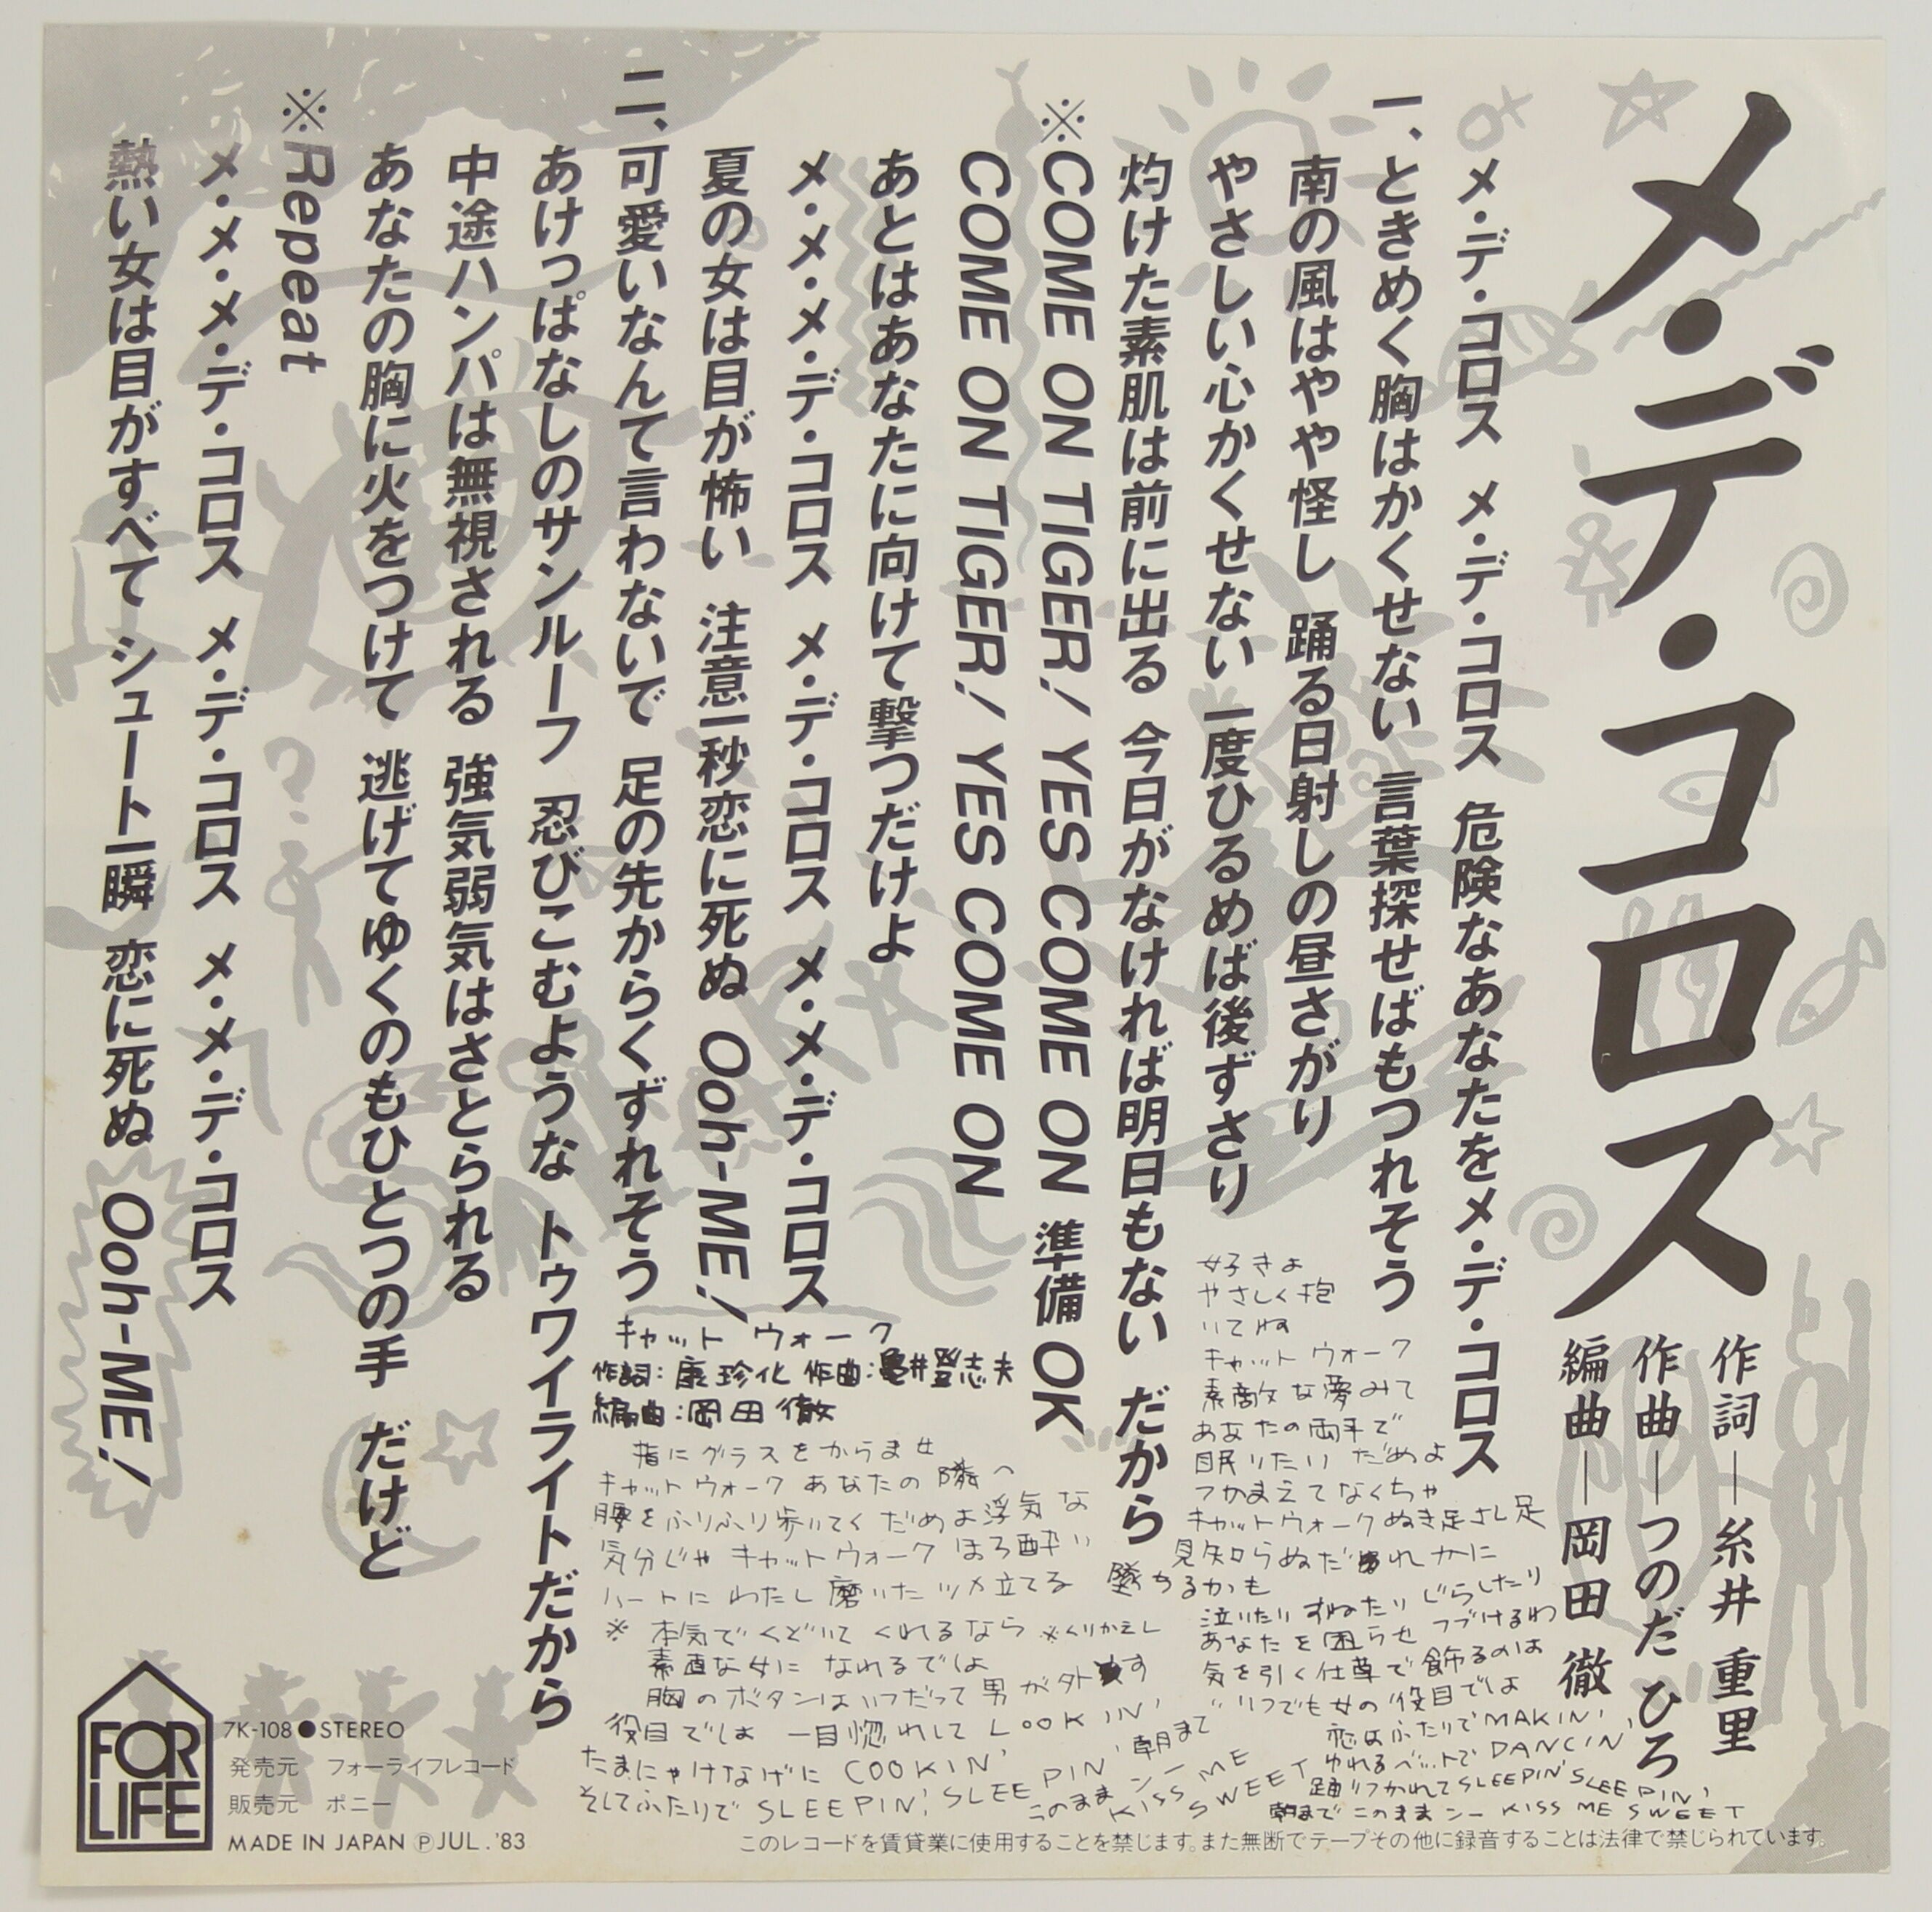 メ・デ・コロス
作詞—糸井 重里
作曲—つのだ ひろ
編曲—岡田 徹
メ・デ・コロス メ・デ・コロス 危険なあなたをメ・デ・コロス
一、ときめく胸はかくせない 言葉探せばもつれそう
南の風はやや怪し 踊る日射しの昼さがり
やさしい心かくせない 一度ひるめば後ずさり
灼けた素肌は前に出る 今日がなければ明日もない だから
※COME ON TIGER! YES COME ON 準備OK
COME ON TIGER! YES COME ON
あとはあなたに向けて撃つだけよ
メ・メ・メ・デ・コロス メ・デ・コロス メ・メ・デ・コロス
夏の女は目が怖い 注意一秒恋に死ぬ Ooh-ME!
二、可愛いなんて言わないで 足の先からくずれそう
あけっぱなしのサンルーフ 忍びこむような トゥワイライトだから
中途ハンパは無視される 強気弱気はさとられる
あなたの胸に火をつけて 逃げてゆくのもひとつの手 だけど
※Repeat
メ・メ・メ・デ・コロス メ・デ・コロス メ・メ・デ・コロス
熱い女は目がすべて シュート一瞬 恋に死ぬ Ooh-ME!
キャット ウォーク
作詞:康珍化 作曲:亀井登志夫
編曲:岡田 徹
指にグラスをからませ
キャットウォーク あなたの 隣へ
腰をふりふり歩いてく だめよ浮気な
気分じゃ キャットウォーク ほろ酔い
ハートに わたし 磨いた ツメ立てる
※ 本気で くどいて くれるなら ※くりかえし
素直な女に なれるでしょ
胸のボタンはいつだって 男が外す
役目でしょ 一目惚れして LOOKIN'
たまにゃけなげに COOKIN'
そしてふたりで SLEEPIN', SLEEPIN' 朝まで
このまま ンー KISS ME SWEET
好きよ
やさしく 抱
いてね
キャット ウォーク
素敵な夢みて
あなたの両手で
眠りたい だめよ
つかまえてなくちゃ
キャットウォークぬき足さし足
見知らぬだれかに
墜ちるかも
泣いたり すねたり じらしたり
あなたを困らせ つづけるわ
気を引く仕草で飾るのは
いつでも女の役目でしょ
恋はふたりで MAKIN'
ゆれるベットで DANCIN'
踊りつかれて SLEEPIN' SLEEPIN'
朝まで このまま ンー KISS ME SWEET
FOR LIFE
7K-108●STEREO
発売元 フォーライフレコード
販売元 ポニー
MADE IN JAPAN ⓅJUL.'83
このレコードを賃貸業に使用することを禁じます。また無断でテープその他に録音することは法律で禁じられています。